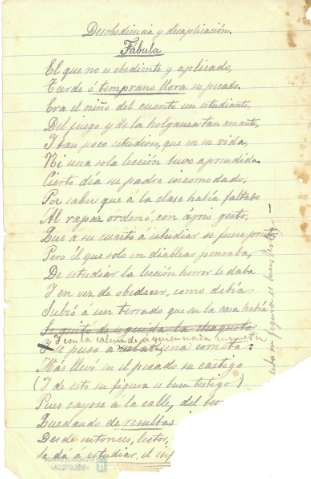 Desobediencia y desaplicación.
Fábula
El que no es obediente y aplicado,
Tarde ó temprano llora su pecado.
Era el niño del cuento un estudiante,
Del juego y de la holganza tan amante,
I tan poco estudioso, que en su vida,
Ni una sola lección tuvo aprendida.
Cierto día su padre incomodado,
Por saber que a la clase había faltado
Al rapaz ordenó, con agrio gesto,
Que a su cuarto á estudiar se fuera presto
Pero él que solo en diabluras pensaba,
De estudiar la lección horror le daba
I en vez de obedecer, como debía
Subió á un terrado que en la casa había
Se quitó de seguida la chaqueta
y se puso a una corneta:
Mas llevó en el pecado su castigo
(I de esto su figura es buen testigo)
Pues cayose a la calle, del
Quedando de resultas
Desde entonces, lector,
Se da a estudiar, el